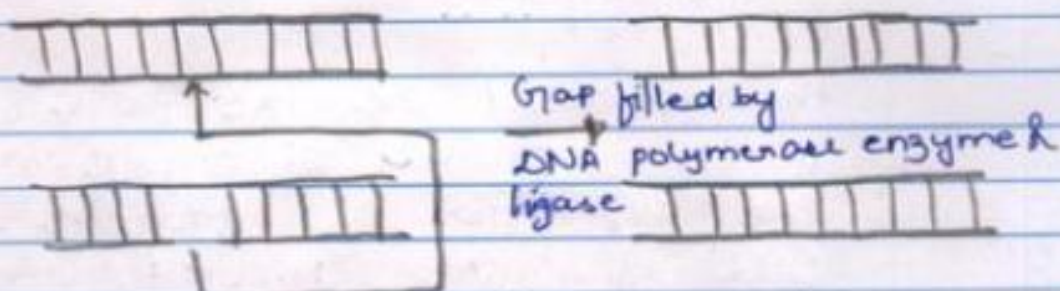 Gap filled by
DNA polymerase enzyme &
ligase